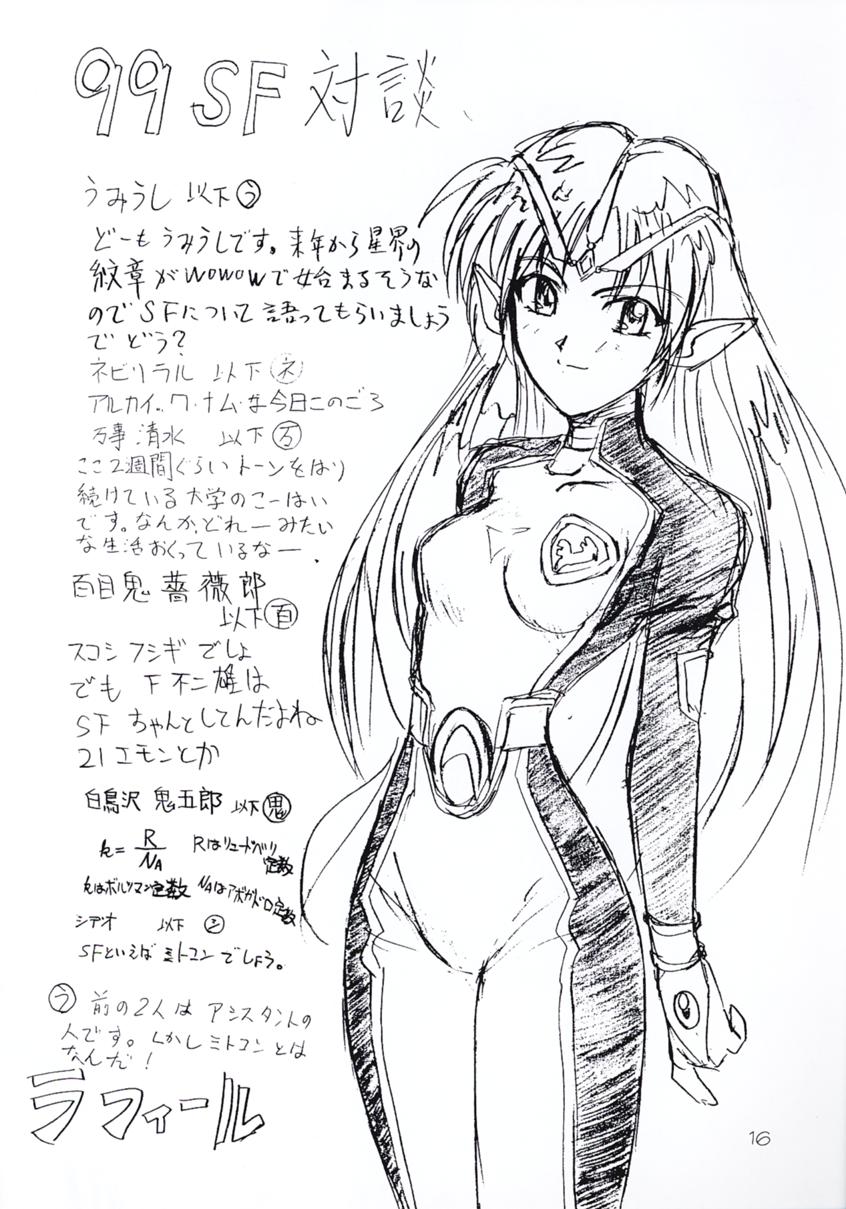 99 SF 対談、
うみうし 以下 う
どーもうみうしです。来年から星界の
紋章がwowowで始まるそうな
のでSFについて語ってもらいましょう
で どう?
ネビリラル 以下 ネ
アルカイ、ワ・ナム・な今日このごろ
万事 清水 以下 万
ここ2週間ぐらいトーンをはり
続けている大学のこーはい
です。なんか、どれーみたい
な生活おくっているなー.
百目鬼 薔薇郎
以下 百
スコシ フシギ でしょ
でも F不二雄は
SF ちゃんとしてんだよね
21エモンとか
白鳥沢 鬼五郎 以下 鬼
k= R/NA Rはリュードベリ定数
kはボルツマン定数 NAはアボガドロ定数
シデオ 以下 シ
SFといえば ミトコン でしょう。
う 前の2人は アシスタントの
人です。しかしミトコンとは
なんだ!
ラフィール
16